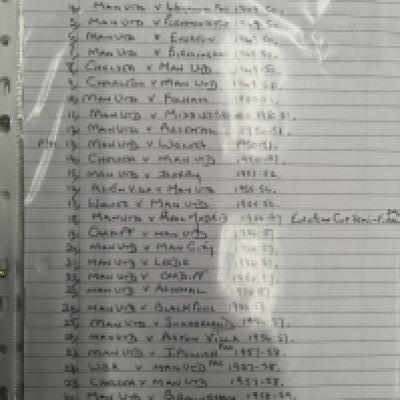 4, MAN UTD V WEYMOUTH FAC 1949-50.
5, MAN UTD V PORTSMOUTH FAC 1949-50.
6, MAN UTD V EVERTON 1949-50.
7, MAN UTD V BIRMINGHAM 1949-50.
8, CHELSEA V MAN UTD 1949-50.
9, CHARLTON V MAN UTD 1949-50.
10, MAN UTD V FULHAM 1950-51.
11, MAN UTD V MIDDLESBRO 1950-51.
12, MAN UTD V ARSENAL 1950-51.
13, MAN UTD V WOLVES 1950-51.
14, CHELSEA V MAN UTD 1950-51.
15, MAN UTD V DERBY 1951-52.
16, ASTON VILLA V MAN UTD
17, WOLVES V MAN UTD
18, MAN UTD V REAL MADRID 1956-57 EUROPEAN CUP SEMI-FINAL
19, CARDIFF V MAN UTD 1956-57.
20, MAN UTD V MAN CITY 1956-57.
21, MAN UTD V LEEDS 1956-57.
22, MAN UTD V CARDIFF 1956-57.
23, MAN UTD V ARSENAL 1956-57.
24, MAN UTD V BLACKPOOL 1956-57.
25, MAN UTD V SUNDERLAND 1956-57.
26, MAN UTD V ASTON VILLA 1956-57.
27, MAN UTD V IPSWICH FAC 1957-58.
28, WBA V MAN UTD FAC 1957-58.
29, CHELSEA V MAN UTD 1957-58.
30, MAN UTD V BIRMINGHAM 1958-59.